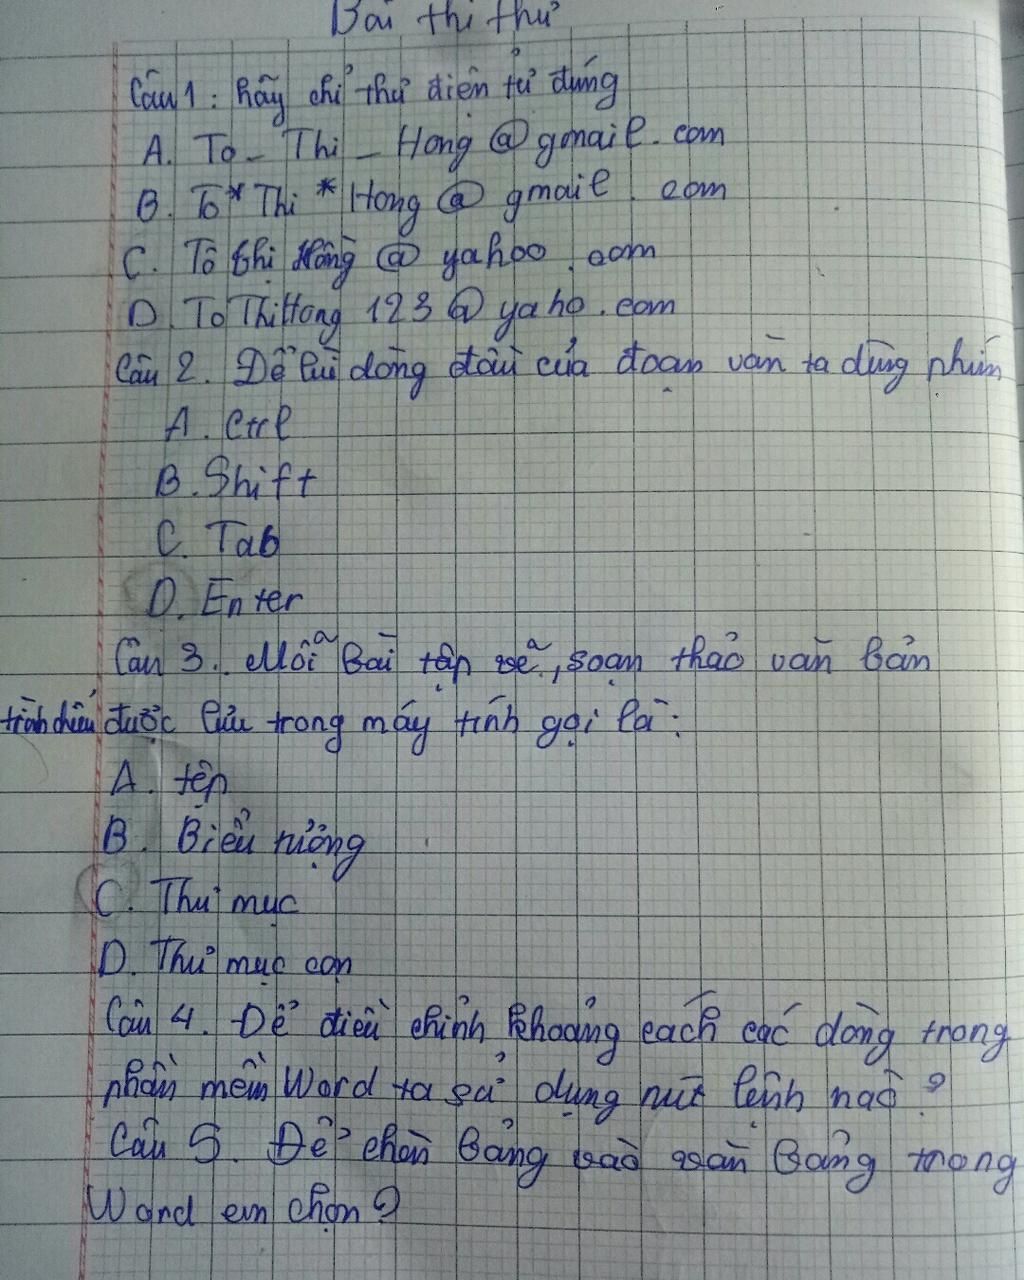 Bài thi thử
Câu 1: hãy chỉ thư điện tử đúng
A. To_ Thi _ Hong @ gmail. com
B. To* Thi * Hong @ gmail. com
C. Tô thị Hồng @ yahoo. com
D. ToThiHong 123 @ yaho. com
Câu 2. Để lùi dòng đầu của đoạn văn ta dùng phím
A. Ctrl
B. Shift
C. Tab
D. Enter
Câu 3. Mỗi bài tập vẽ, soạn thảo văn bản
trình chiếu được lưu trong máy tính gọi là:
A. tệp
B. Biểu tượng
C. Thư mục
D. Thư mục con
Câu 4. Để điều chỉnh khoảng cách các dòng trong
phần mềm Word ta sử dụng nút lệnh nào?
Câu 5. Để chèn bảng vào văn bảng trong
Word em chọn?